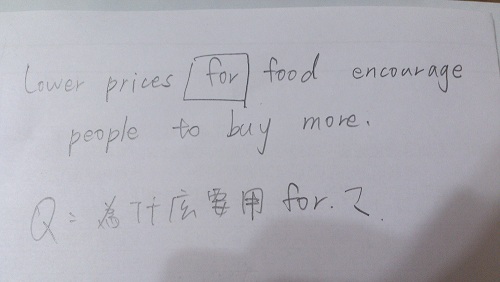 Lower prices for food encourage
people to buy more.
Q: 為什広要用 for.?